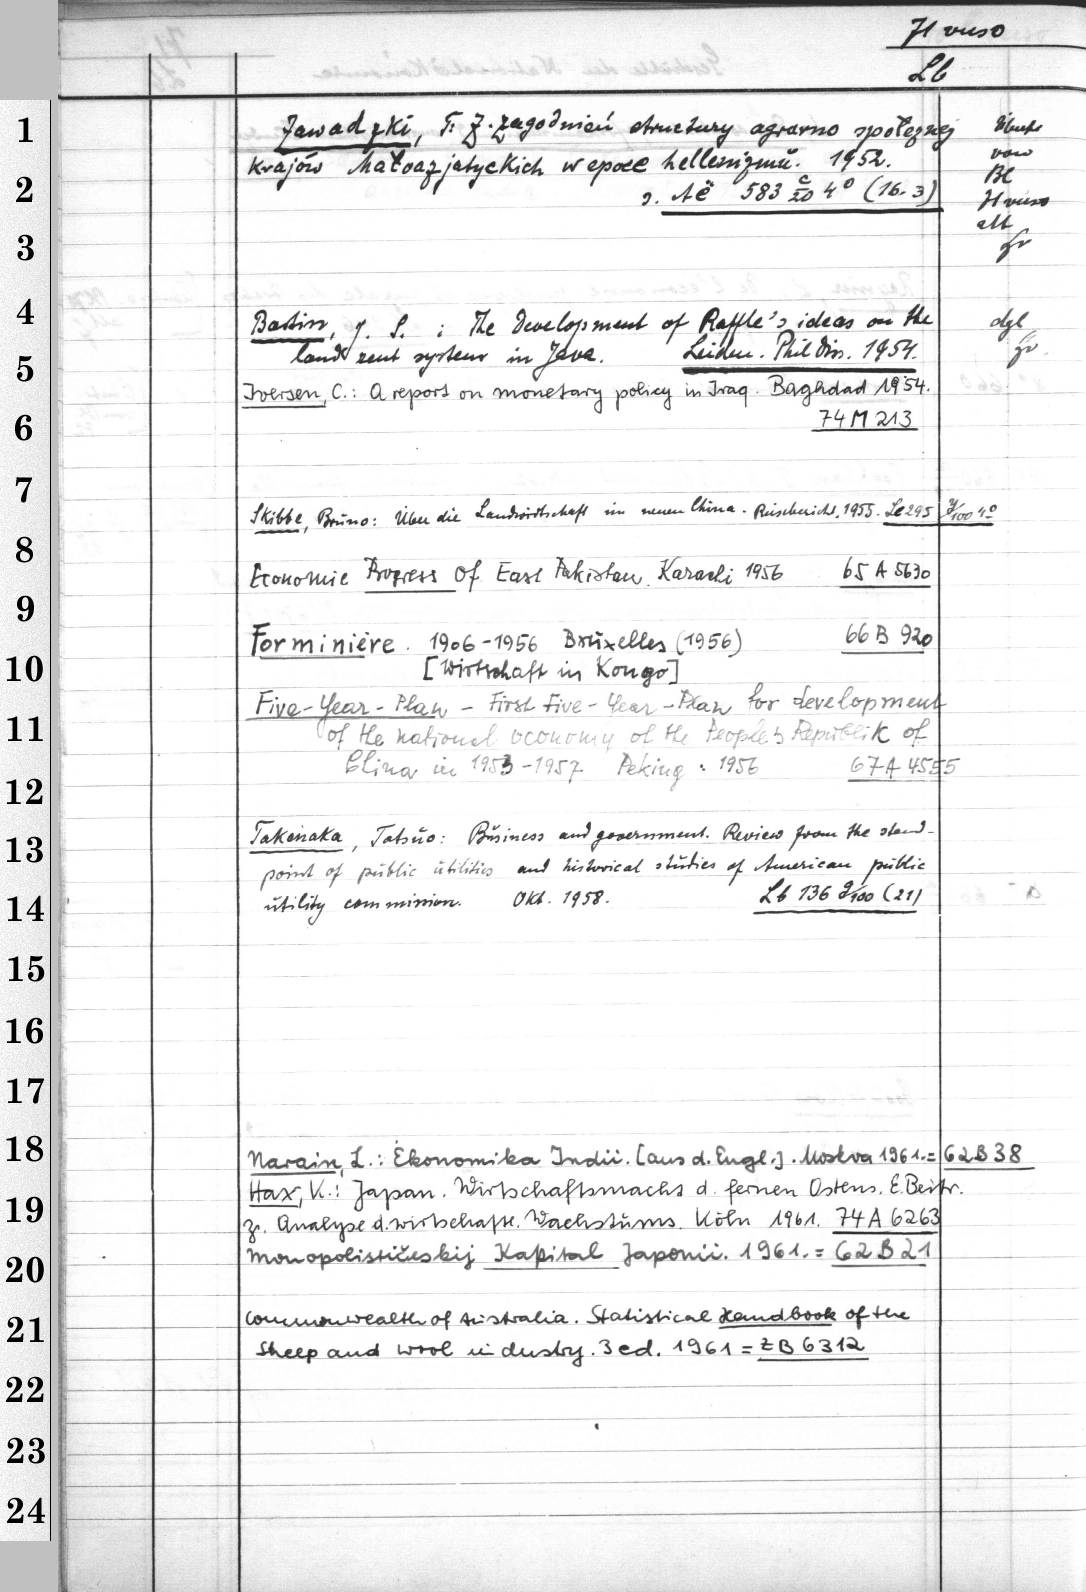 Lb
1
Zawadzki, T. Z zagadnień struktury agrarno społeznej
2
Krajów Małoazjatyckich w epoce hellenizmu. 1952.
s. Aë 583 c/20 4° (16.3)
von
Bl
alt
fr
3
4
Bastin, J. S. : The Development of Raffle's ideas on the
dgl
fr.
5
land rent system in Java. Leiden. Phil Diss. 1954.
Iversen, C.: A report on monetary policy in Iraq. Baghdad 1954.
6
74 M 213
7
Skibbe, Bruno: Über die Landwirtschaft im neuen China. Reisebericht, 1955. Le 295 g/100 4°
8
Economic Progress of East Pakistan. Karachi 1956 65 A 5630
9
Forminière. 1906-1956 Bruxelles (1956) 66 B 920
10
[Wirtschaft in Kongo]
Five-Year-Plan - First Five-Year-Plan for development
11
of the national economy of the People's Republik of
China in 1953-1957 Peking. 1956 67 A 4555
12
13
Takenaka, Tatsuo: Business and government. Review from the stand-
point of public utilities and historical studies of American public
14
utility commission. Okt. 1958. Lb 136 g/100 (21)
15
16
17
18
Narain, L.: Ėkonomika Indii. [aus d. Engl.]. Moskva 1961.= 62 B 38
Hax, K.: Japan. Wirtschaftsmacht d. fernen Ostens. E. Beitr.
19
z. Analyse d. wirtschaftl. Wachstums. Köln 1961. 74 A 6263
20
Monopolističeskij Kapital Japonii. 1961.= 62 B 21
21
Commonwealth of Australia. Statistical Handbook of the
Sheep and wool industry. 3 ed. 1961 = ZB 6312
22
23
24